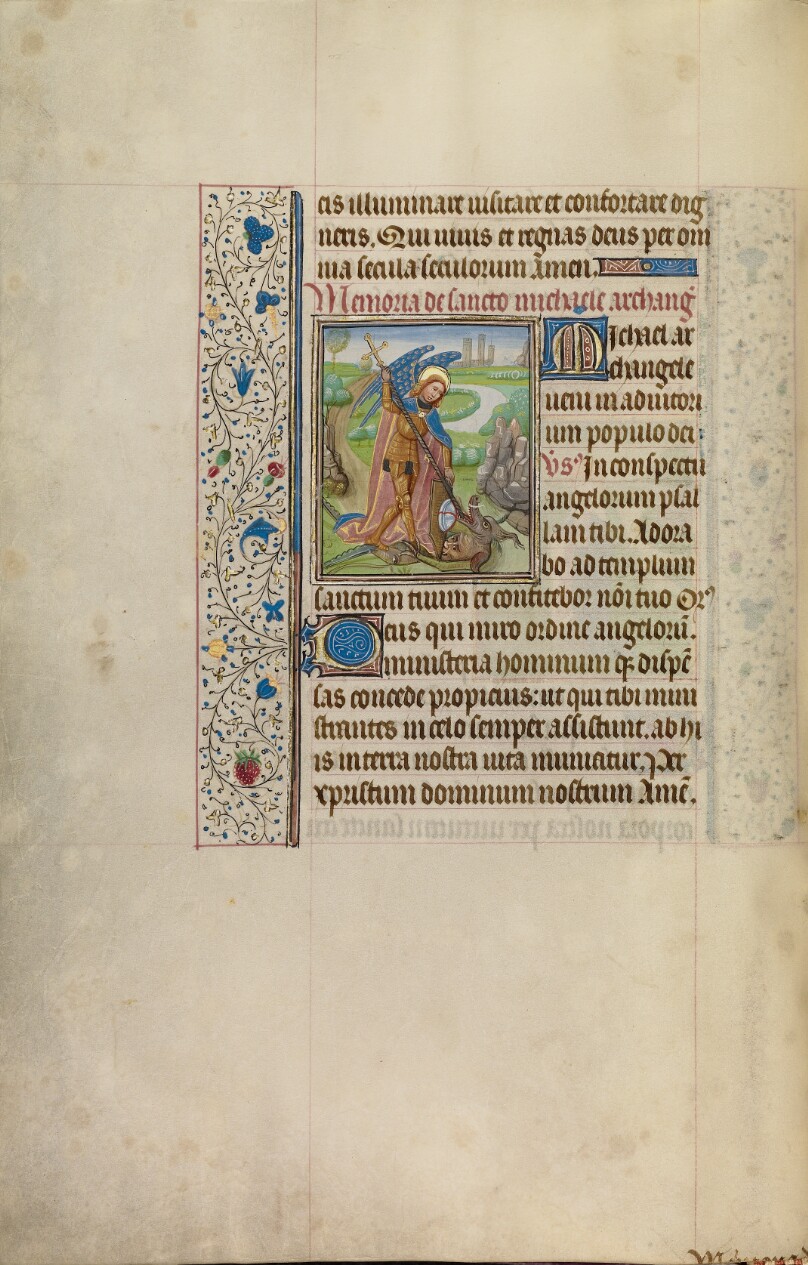 cis illuminare uisitare et confortare dig
neris. Qui uiuis et regnas deus per om
nia secula seculorum Amen.
Memoria de sancto michaele archang̃
Michael ar
changele
ueni in adiutori
um populo dei:
Vs̃ In conspectu
angelorum psal
lam tibi. Adora
bo ad templum
sanctum tuum et confitebor nõi tuo Or̃
Deus qui miro ordine angelorũ.
ministeria hominum q̃ dispẽ
sas concede propicius: ut qui tibi mini
strantes in celo semper assistunt. ab hi
is in terra nostra uita muniatur. Per
xpristum dominum nostrum Amẽ.